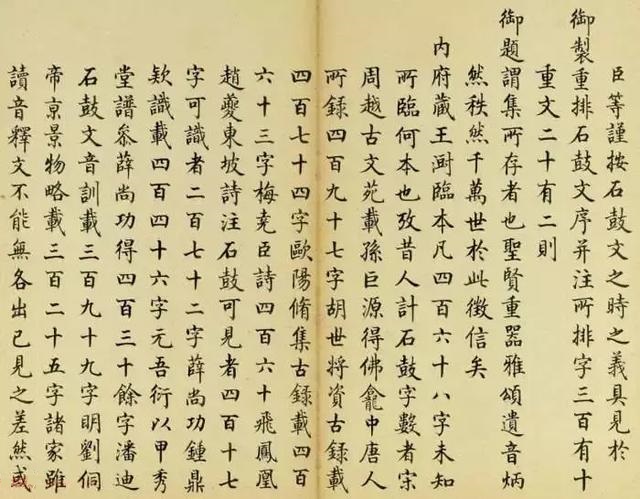 臣等謹按石鼓文之時之義具見於
御製重排石鼓文序并注所排字三百有十
重文二十有二則
御題謂集所存者也聖賢重器雅頌遺音炳
然秩然千萬世於此徵信矣
內府藏王澍臨本凡四百六十八字未知
所臨何本也攷昔人計石鼓字數者宋
周越古文苑載孫巨源得佛龕中唐人
所録四百九十七字胡世將資古録載
四百七十四字歐陽脩集古録載四百
六十三字梅堯臣詩四百六十飛鳳凰
趙夔東坡詩注石鼓可見者四百十七
字可識者二百七十二字薛尚功鍾鼎
欵識載四百四十六字元吾衍以甲秀
堂譜叅薛尚功得四百三十餘字潘迪
石鼓文音訓載三百九十九字明劉侗
帝京景物略載三百二十五字諸家雖
讀音釋文不能無各出已見之差然或